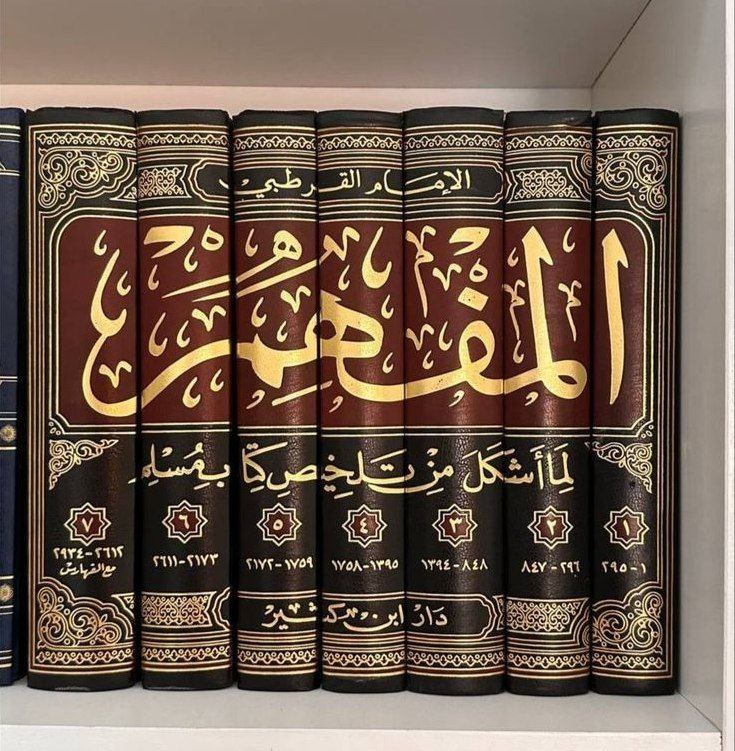 الإمام القرطبي
المفهم
لما أشكل من تلخيص كتاب مسلم
١ ٢ ٣ ٤ ٥ ٦ ٧
١-٢٩٥
٢٩٦-٨٤٧
٨٤٨-١٣٩٤
١٣٩٥-١٧٥٨
١٧٥٩-٢١٧٢
٢١٧٣-٢٦١١
٢٦١٢-٢٩٣٤
مع الفهارس
دار ابن كثير